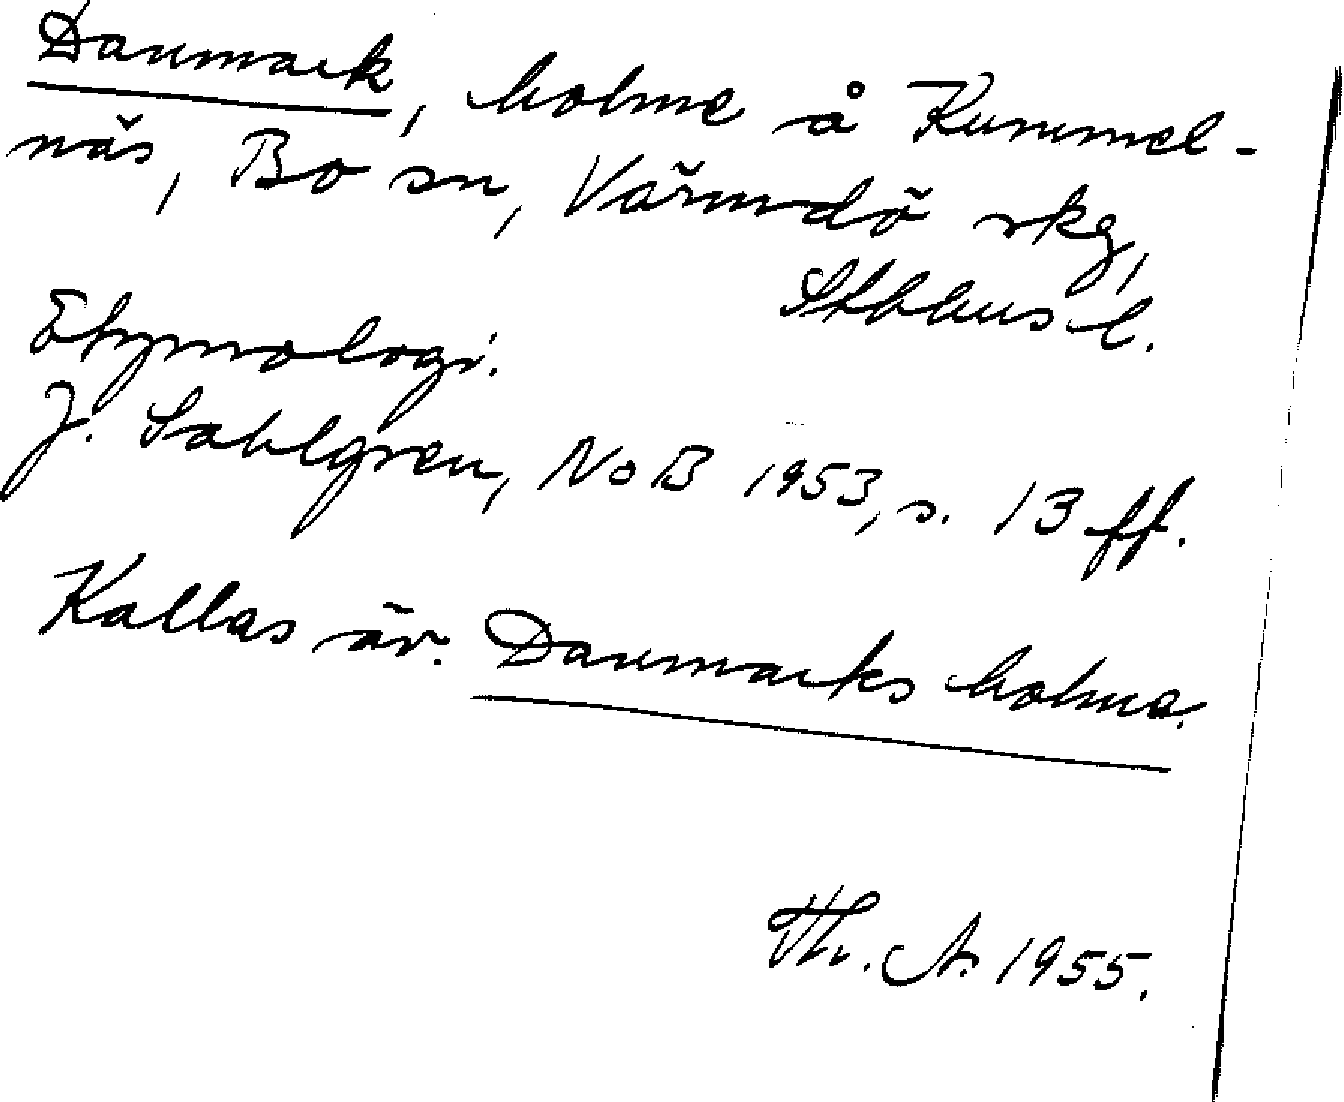 Danmark, holme å Kummel-
näs, Bo sn, Värmdö skg,
Sthlms l.
Etymologi.
J. Sahlgren, NoB 1953, s. 13 ff.
Kallas äv. Danmarks holme.
Th. A. 1955.